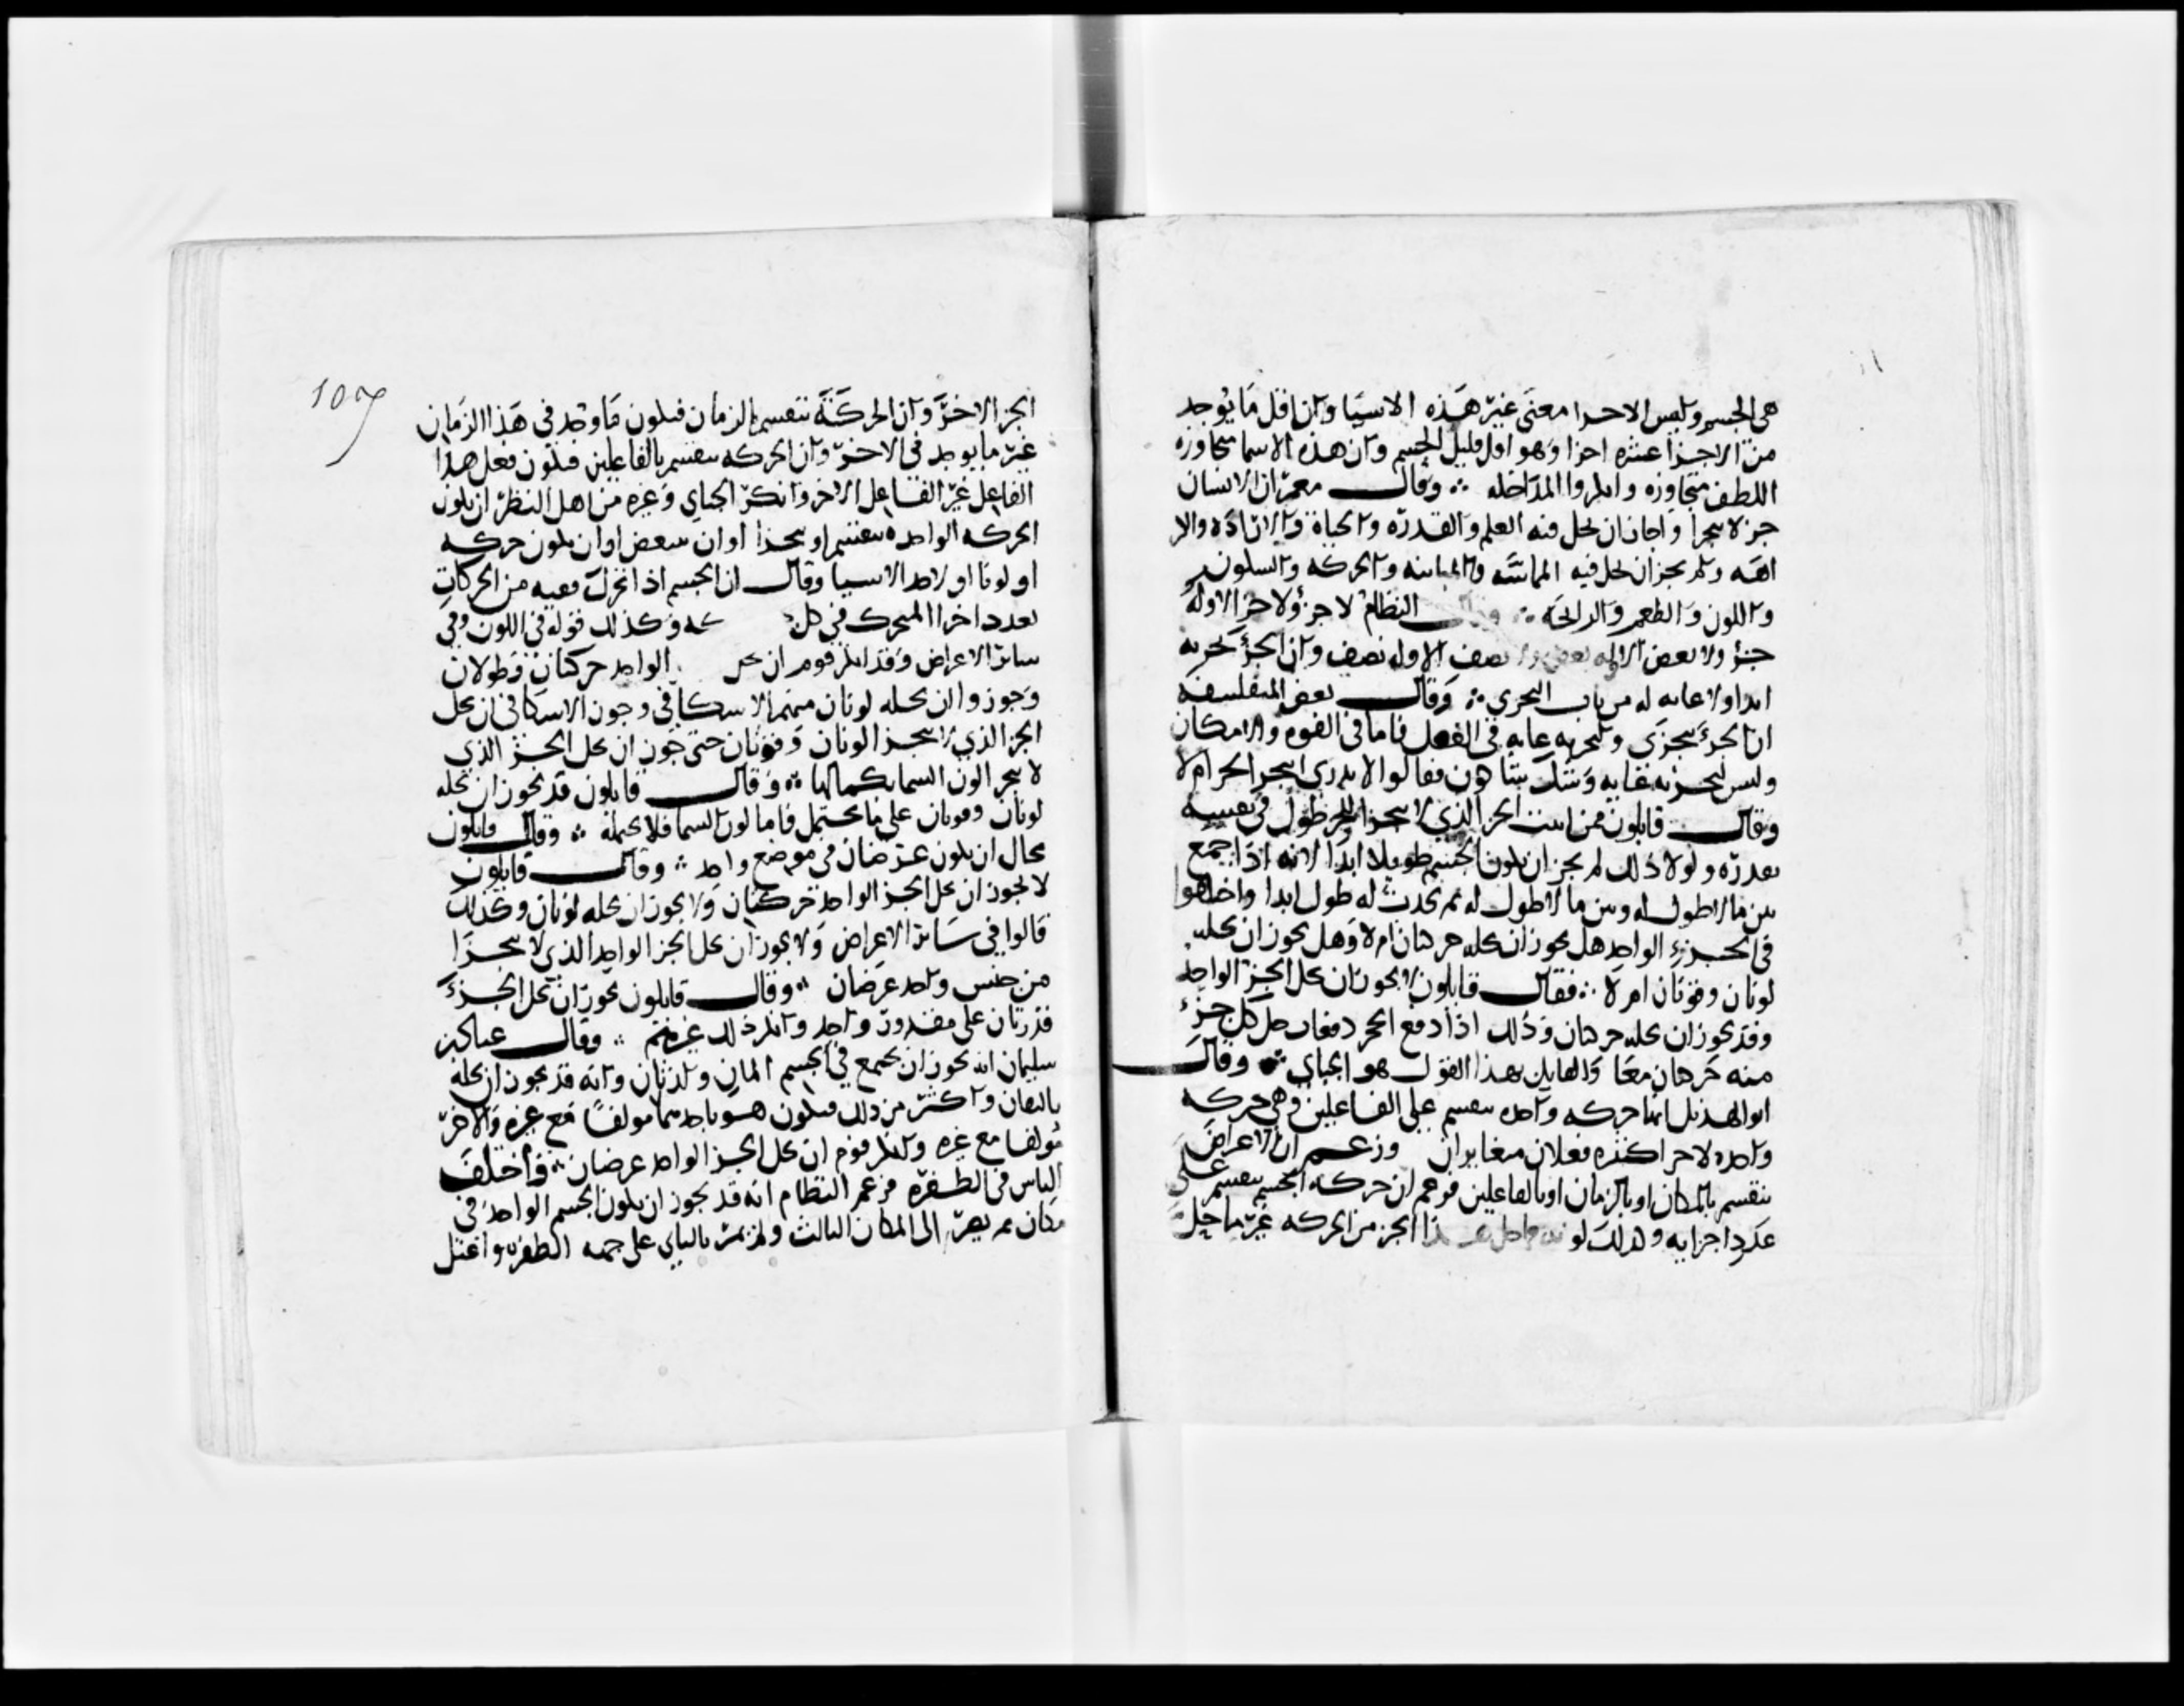 هي الجسم وليس الاجزا معنى غير هذه الاشيا وان اقل ما يوجد
من الاجزا عشره اجزا وهو اول قليل الجسم وان هذه الاسما متجاوره
اللطف متجاوزه وانكروا المداخله ∴ وقال معمر ان الانسان
جز لا يتجزا واجاز ان يحل فيه العلم والقدرة والحياة والارادة والكر
اهه ولم يجز ان يحل فيه المماسه والمباينه والحركه والسكون
واللون والطعم والرائحه ∴ النظام لا جزؤ الا وله
جزؤ ولا بعض الا وله بعض ولا نصف الا وله نصف وان الجزؤ تجزيه
ابدا ولا غايه له من باب التجزي ∴ وقال بعض المتفلسفه
ان الجزؤ يتجزى ولتجزيه غايه في الفعل فاما في القوه والامكان
وليس لتجزيه غايه وشك شاكون فقالوا لا ندري ايتجزا الجز ام لا
وقال قايلون ممن اثبت الجز الذي لا يتجزا للجز طول في نفسه
بقدره ولولا ذلك لم يجز ان يكون الجسم طويلا ابدا لانه اذا جمع
بين ما لا طول له وبين ما لا طول له لم يحدث له طول ابدا واختلفوا
في الجزء الواحد هل يجوز ان يحله حركتان ام لا وهل يجوز ان يحله
لونان وقوتان ام لا ∴ فقال قايلون لا يجوز ان يحل الجز الواحد
وقد يجوز ان يحله حركتان وذلك اذا دفع الحجر دفعان حل كل جزء
منه حركتان معا والقايل بهذا القول هو الجباي ∴ وقال
ابو الهذيل انها حركه واحده تنقسم على الفاعلين وهي حركه
واحده لاجزا كثيره فعلان متغايران وزعم ان الاعراض
تنقسم بالمكان او بالزمان او بالفاعلين فزعم ان حركه الجسم تنقسم على
عدد اجزايه وكذلك لونه فما حل هذا الجز من الحركه غير ما حل
107
الجز الاخر وان الحركة تنقسم بالزمان فيكون ما وجد في هذا الزمان
غير ما يوجد في الاخر وان الحركه تنقسم بالفاعلين فيكون فعل هذا
الفاعل غير الفاعل الاخر وانكر الجباي وغيره من اهل النظر ان يكون
الحركه الواحده تنقسم او تتجزا او ان تتبعض او ان يكون حركه
او لونا او لاحد الاشيا وقال ان الجسم اذا تحرك ففيه من الحركات
بعدد اجزا المتحرك في كل وكذلك قوله في اللون وفي
ساير الاعراض وقد انكر قوم ان يحل الواحد حركتان وطولان
وجوزوا ان يحله لونان منهم الاسكافي وجوز الاسكافي ان يحل
الجز الذي لا يتجزا لونان وقوتان حتى جوز ان يحل الجز الذي
لا يتجزا لون السما بكمالها ∴ وقال قايلون قد يجوز ان يحله
لونان وقوتان على ما يحتمل فاما لون السما فلا يحتمله ∴ وقال قايلون
محال ان يكون عرضان في موضع واحد ∴ وقال قايلون
لا يجوز ان يحل الجز الواحد حركتان ولا يجوز ان يحله لونان وكذلك
قالوا في ساير الاعراض ولا يجوز ان يحل الجز الواحد الذي لا يتجزا
من جنس واحد عرضان ∴ وقال قايلون يجوز ان يحل الجزء
قدرتان على مقدور واحد وانكر ذلك غيرهم ∴ وقال عباد بن
سليمان انه يجوز ان يجتمع في الجسم المان ولذتان وانه قد يجوز ان يحله
تاليفان واكثر من ذلك فيكون هو باحدهما مولفا مع غيره والاخر
مولفا مع غيره وانكر قوم ان يحل الجز الواحد عرضان ∴ واختلف
الناس في الطفره فزعم النظام انه قد يجوز ان يكون الجسم الواحد في
مكان ثم يصير الى المكان الثالث ولم يمر بالثاني على جهه الطفره واعتل